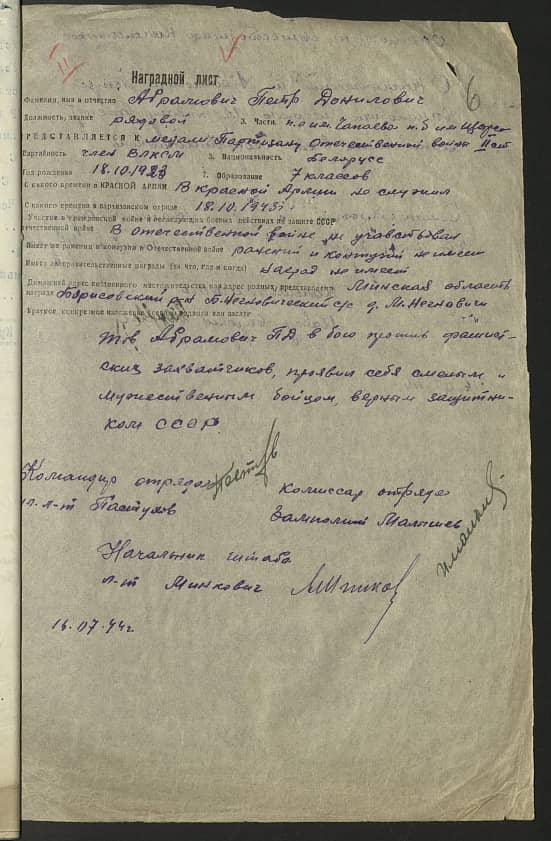 6
Наградной лист
Фамилия, имя и отчество Абрамович Петр Данилович
Должность, звание рядовой 3. Часть п.о им. Чапаева п.б им Щорса
ПРЕДСТАВЛЯЕТСЯ К медали Партизану Отечественной войны II ст
Партийность член ВЛКСМ 5. Национальность Белорусс
Год рождения 18.10.1923 7. Образование 7 классов
С какого времени в КРАСНОЙ АРМИИ В Красной Армии не служил
С какого времени в партизанском отряде 18.10.1943г
Участие в гражданской войне и последующих боевых действиях по защите СССР
отечественной войне В отечественной войне не участвовал
Имеет ли ранения и контузии в Отечественной войне ранений и контузий не имеет
Имеет ли правительственные награды (за что, где и когда) наград не имеет
Домашний адрес представленного Минская область
награде Борисовский р-н П.Негновический с/с д. М.Негновичи
Краткое, конкретное
тов Абрамович ПД в бою против фашист-
ских захватчиков, проявил себя смелым и
мужественным бойцом, верным защитни-
ком СССР.
Командир отряда
л-т Пастухов
Комиссар отряда
Замполит Малышев
Начальник штаба
л-т Минкович
16.07.44г.